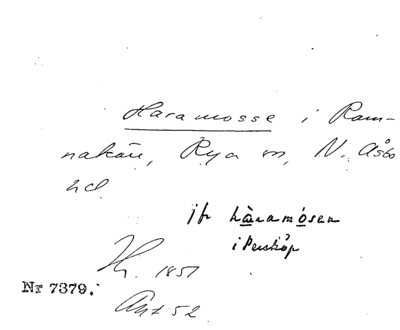 Haramosse i Ram-
nakärr, Rya sn, N. Åsbo
hd
jfr haramosen
i Perstorp
1851
Nr 7379.
Ant 52